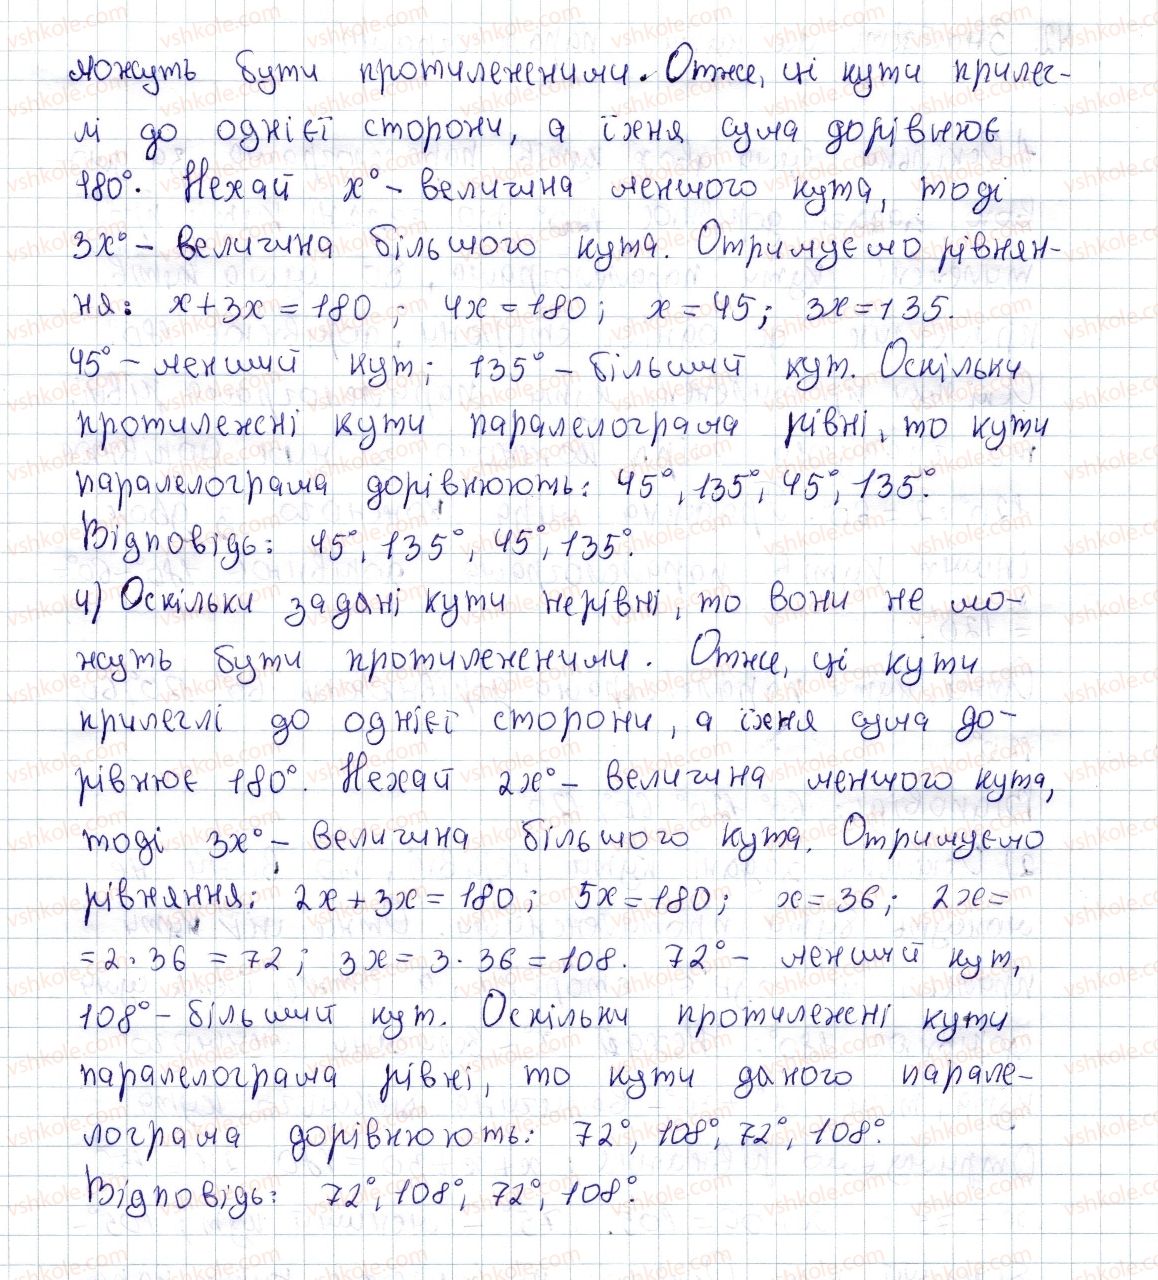 можуть бути протилежними. Отже, ці кути прилег-
лі до однієї сторони, а їхня сума дорівнює
180°. Нехай x° – величина меншого кута, тоді
3x° – величина більшого кута. Отримуємо рівнян-
ня: x + 3x = 180 ; 4x = 180; x = 45; 3x = 135.
45° – менший кут; 135° – більший кут. Оскільки
протилежні кути паралелограма рівні, то кути
паралелограма дорівнюють: 45°, 135°, 45°, 135°.
Відповідь: 45°, 135°, 45°, 135°.
4) Оскільки задані кути нерівні, то вони не мо-
жуть бути протилежними. Отже, ці кути
прилеглі до однієї сторони, а їхня сума до-
рівнює 180°. Нехай 2x° – величина меншого кута,
тоді 3x° – величина більшого кута. Отримуємо
рівняння: 2x + 3x = 180 ; 5x = 180; x = 36; 2x =
= 2 · 36 = 72 ; 3x = 3 · 36 = 108. 72° – менший кут,
108° – більший кут. Оскільки протилежні кути
паралелограма рівні, то кути даного парале-
лограма дорівнюють: 72°, 108°, 72°, 108°.
Відповідь: 72°, 108°, 72°, 108°.